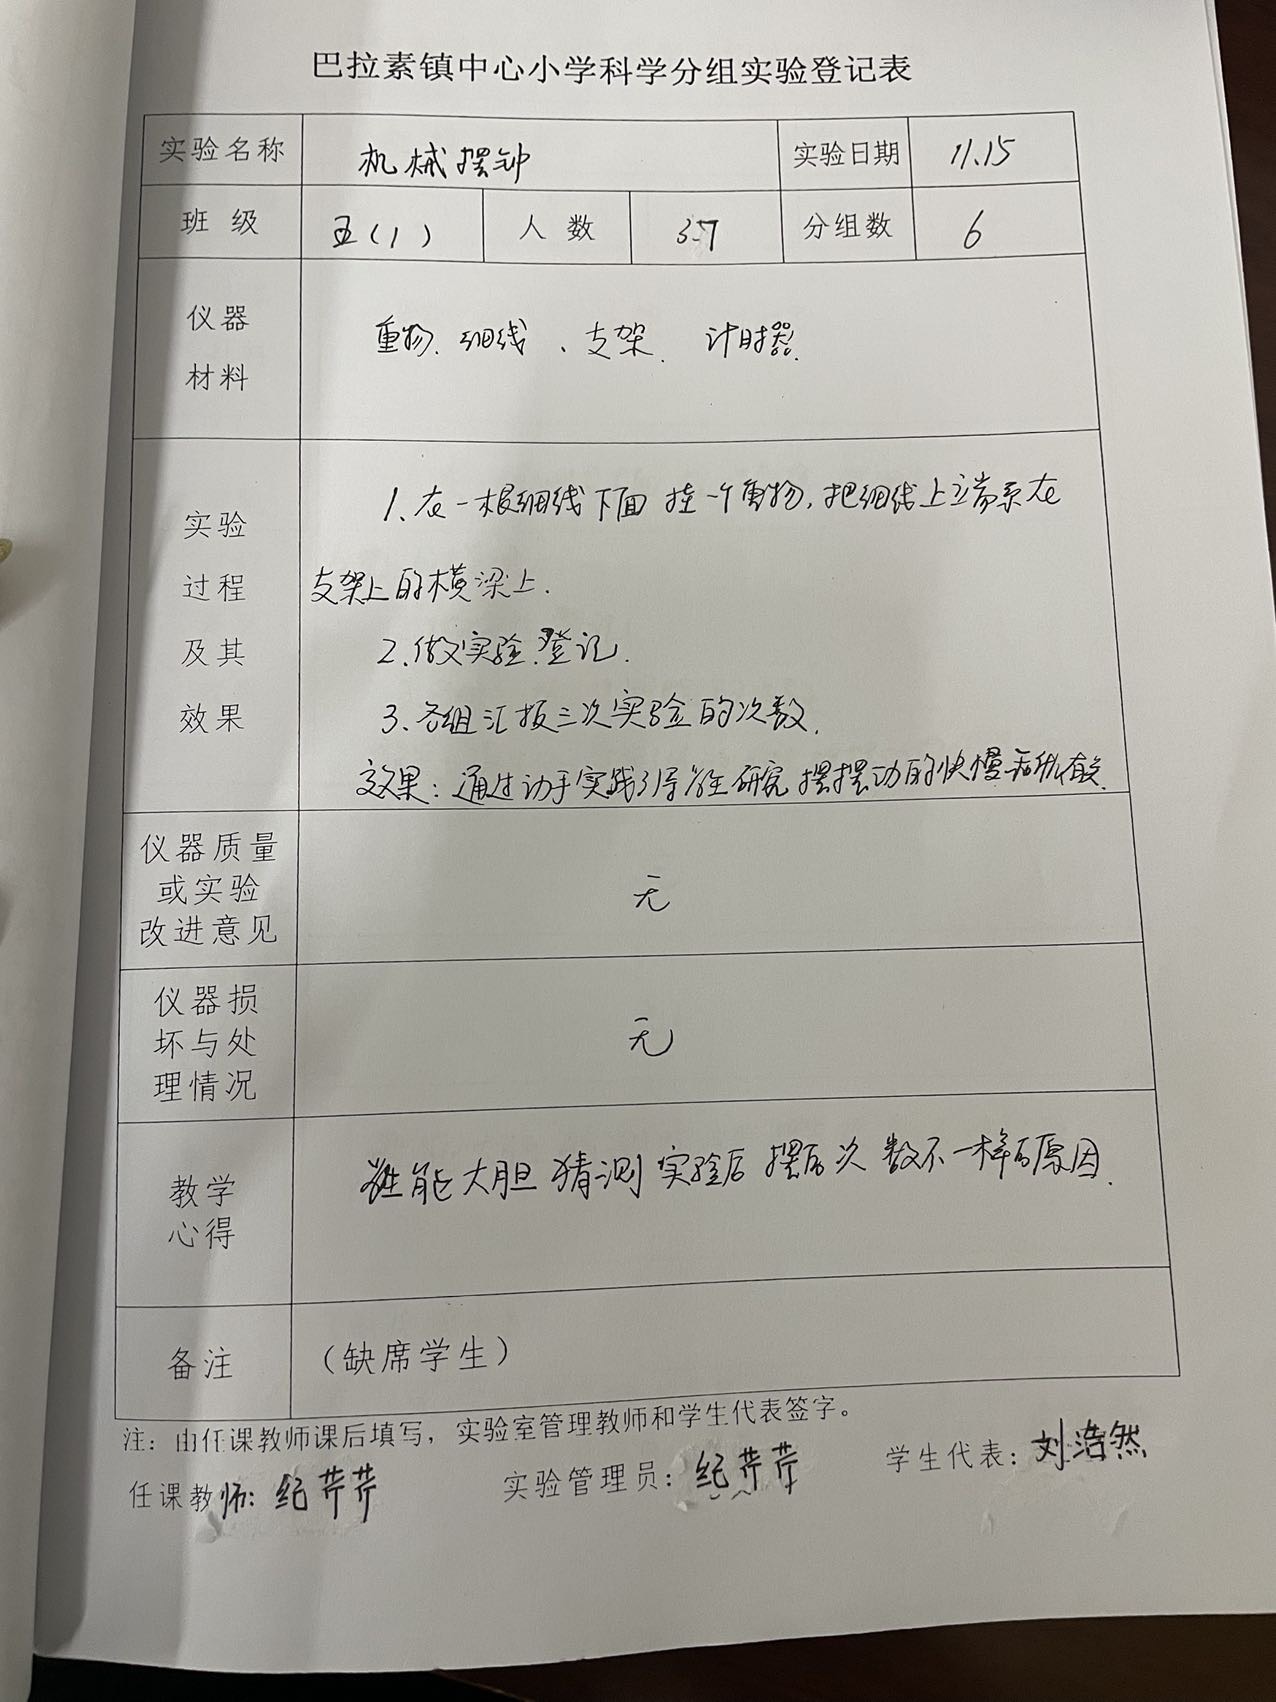 巴拉素镇中心小学科学分组实验登记表
实验名称 机械摆钟 实验日期 11.15
班 级 五(1) 人 数 37 分组数 6
仪器
材料
重物、细线、支架、计时器.
实验
过程
及其
效果
1、在一根细线下面挂一个重物,把细线上端系在
支架上的横梁上.
2、做实验登记.
3、各组汇报三次实验的次数.
效果:通过动手实践引导学生研究摆摆动的快慢和
仪器质量
或实验
改进意见
无
仪器损
坏与处
理情况
无
教学
心得
能大胆猜测实验后摆的次数不一样的原因.
备注 (缺席学生)
注:由任课教师课后填写,实验室管理教师和学生代表签字。
任课教师:纪芹芹 实验管理员:纪芹芹 学生代表:刘浩然